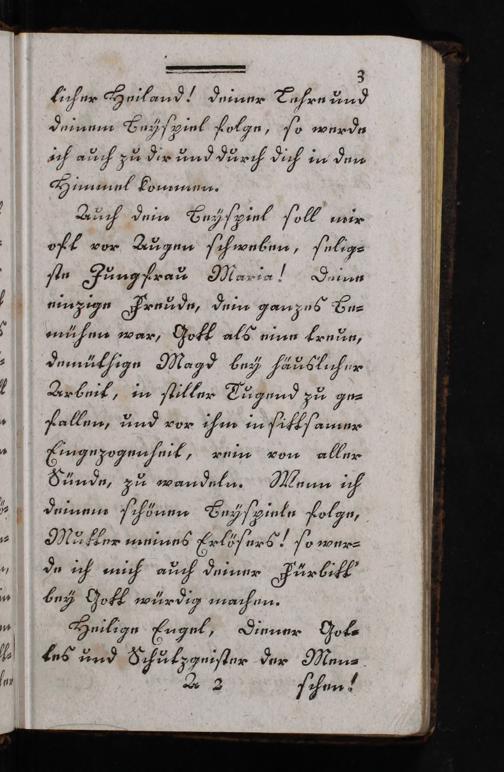 3
licher Heiland! deiner Lehre und
deinem Beÿspiel folge, so werde
ich auch zu dir und durch dich in den
Himmel kommen.
Auch dein Beÿspiel soll mir
oft vor Augen schweben, selig=
ste Jungfrau Maria! Deine
einzige Freude, dein ganzes Be=
mühen war, Gott als eine treue,
demüthige Magd beÿ häuslicher
Arbeit, in stiller Tugend zu ge=
fallen, und vor ihm in sittsamer
Eingezogenheit, rein von aller
Sünde, zu wandeln. Wenn ich
deinem schönen Beÿspiele folge,
Mutter meines Erlösers! so wer=
de ich mich auch deiner Fürbitt'
beÿ Gott würdig machen.
Heilige Engel, Diener Got=
tes und Schutzgeister der Men=
A 2 schen!